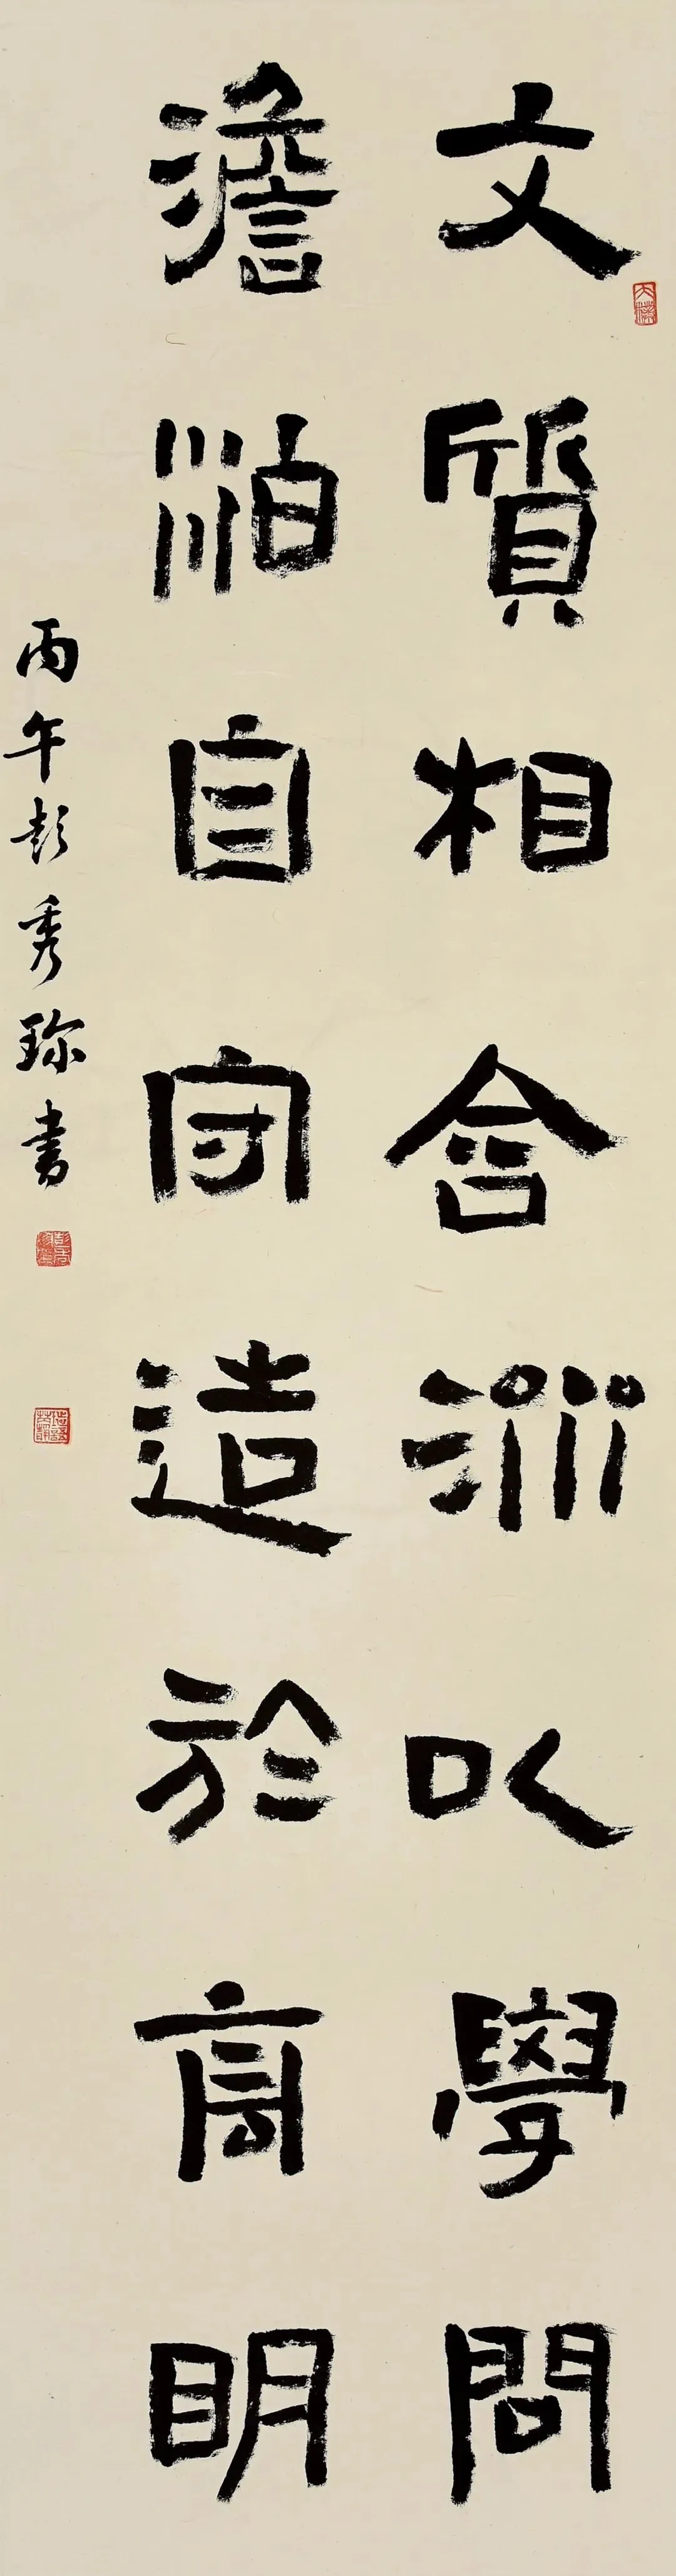 文質相含濟以學問
澹泊自守造於高明
丙午彭秀珎書